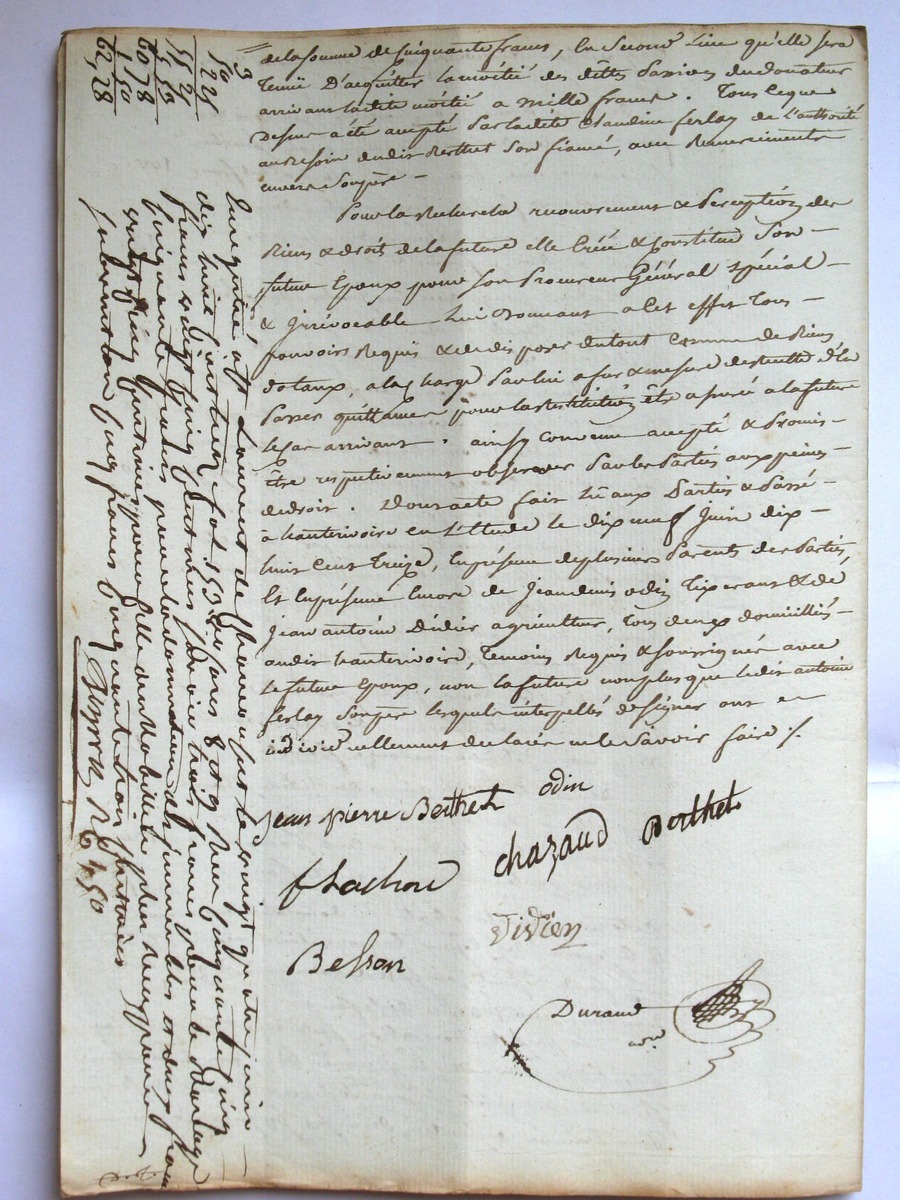 de la somme de cinquante francs, en second lieu qu'elle sera
tenüe D'acquitter la moitié des dettes passives du donateur
arrivant la dite moitié a mille francs. Tout ce que
Dessus a été accepté par la dite Claudine ferlay de l'authorité
au besoin dudit Berthet son fiancé, avec Remerciements
envers son père —
Pour la Recherche recouvrement & perception des
Biens & droits de la future elle Créé & Constitue Son —
futur Epoux pour son Procureur Général spécial —
& irrévocable Lui Donnant a cet effet tous —
pouvoirs Requis & de disposer du tout comme de Biens
dotaux, a la charge par lui a fur & mesure de recette d'en
passer quittances pour la restitution être assurée a la future
le cas arrivant. ainsy convenu accepté & promis —
être respectivement observer par les Parties aux peines —
de droit. Dont acte fait lü aux Parties & passé —
à hauterivoire en l'Etude le dix neuf Juin dix —
huit cent treize, En présence de plusieurs parents des Parties,
Et en présence encore de Jean denis odin tixerant & de
Jean antoine Didier agriculteur, tous deux domiciliés —
audit hauterivoire, temoins Requis & soussignés avec
le futur Epoux, non la future non plus que ledit antoine
ferlay son père lesquels interpellés de signer ont —
individuellement déclarés ne le savoir faire /.
jean pierre Berthet odin
chazaud Berthet
Besson
Durand
3
50 25
55 25
60 78
1 50
62,28
Enregistré à St Laurent de Chamousset le vingt quatre juin
dix huit cent treize fol 153 Rº cases 8 et 9 Reçu cinquante cinq
francs vingt cinq centimes savoir trois francs pour le Mariage
cinquante francs pour la donnation des immeubles et deux francs
vingt cinq centimes pour celle du Mobilier plus Reçu pour
subvention cinq francs cinquante trois centimes